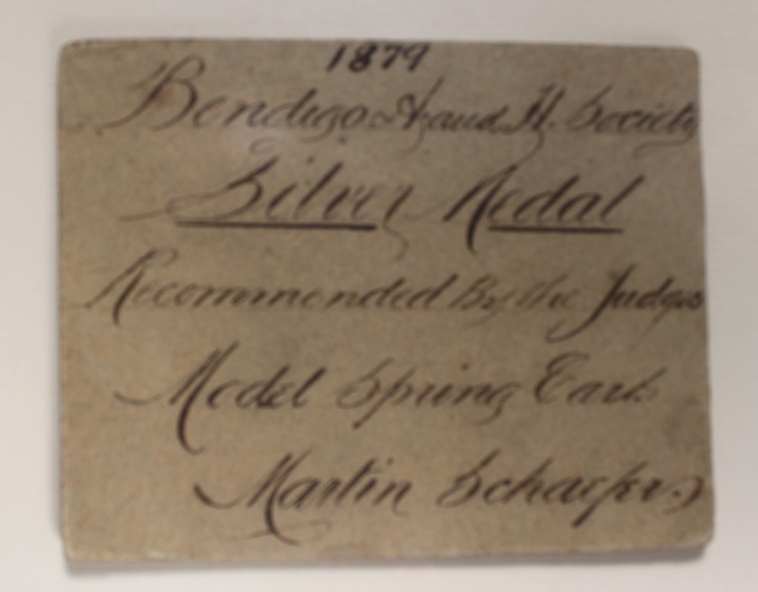 1879
Bendigo A. and H. Society
Silver Medal
Recommended By the Judges
Model Spring Cart
Martin Schaefer.